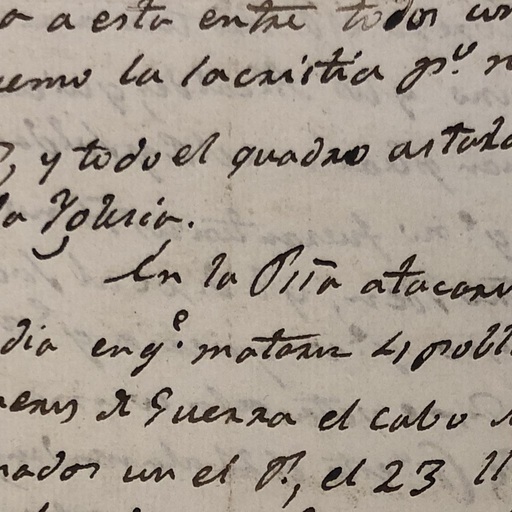 a a esta entre todos con
uemo la sacristia p.r n
P., y todo el quadro asta la
la Yglesia.
En la Pssa atacaron
dia en q.e mataron 4 pobl
nens de Guerra el cabo d
nados con el P., el 23 ll